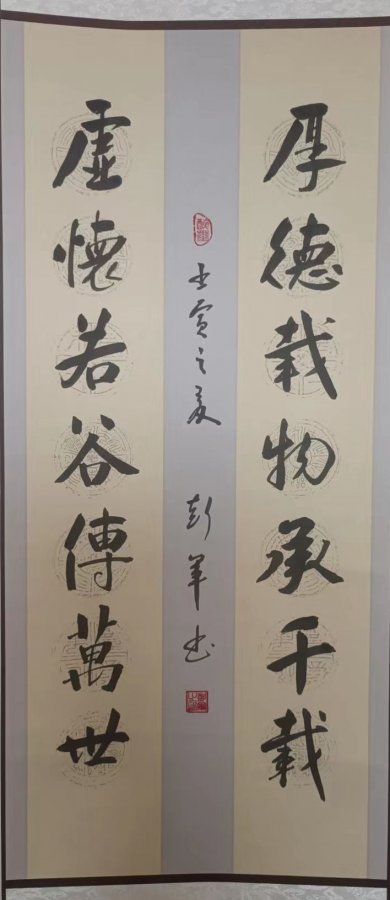 厚德载物承千載
虛懷若谷傳萬世
壬寅之夏 彭軍书